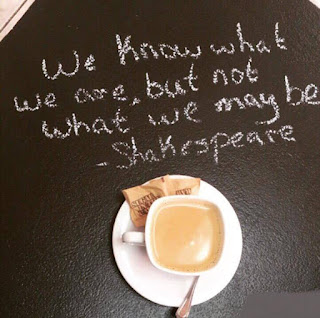 We Know what
we are, but not
what we may be
- Shakespeare